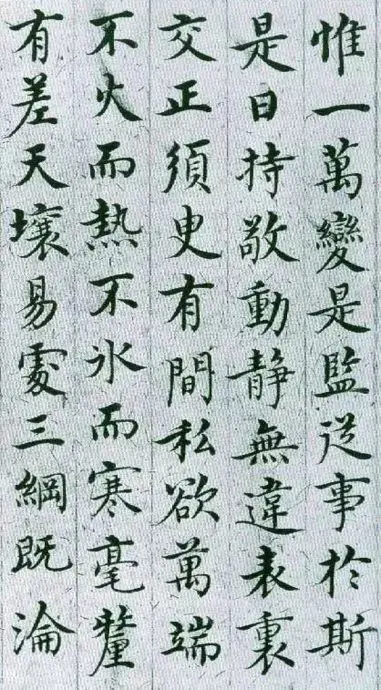 惟一萬變是監従事扵斯
是曰持敬動静無違表裏
交正須臾有間私欲萬端
不火而熱不氷而寒毫釐
有差天壤易處三綱既淪